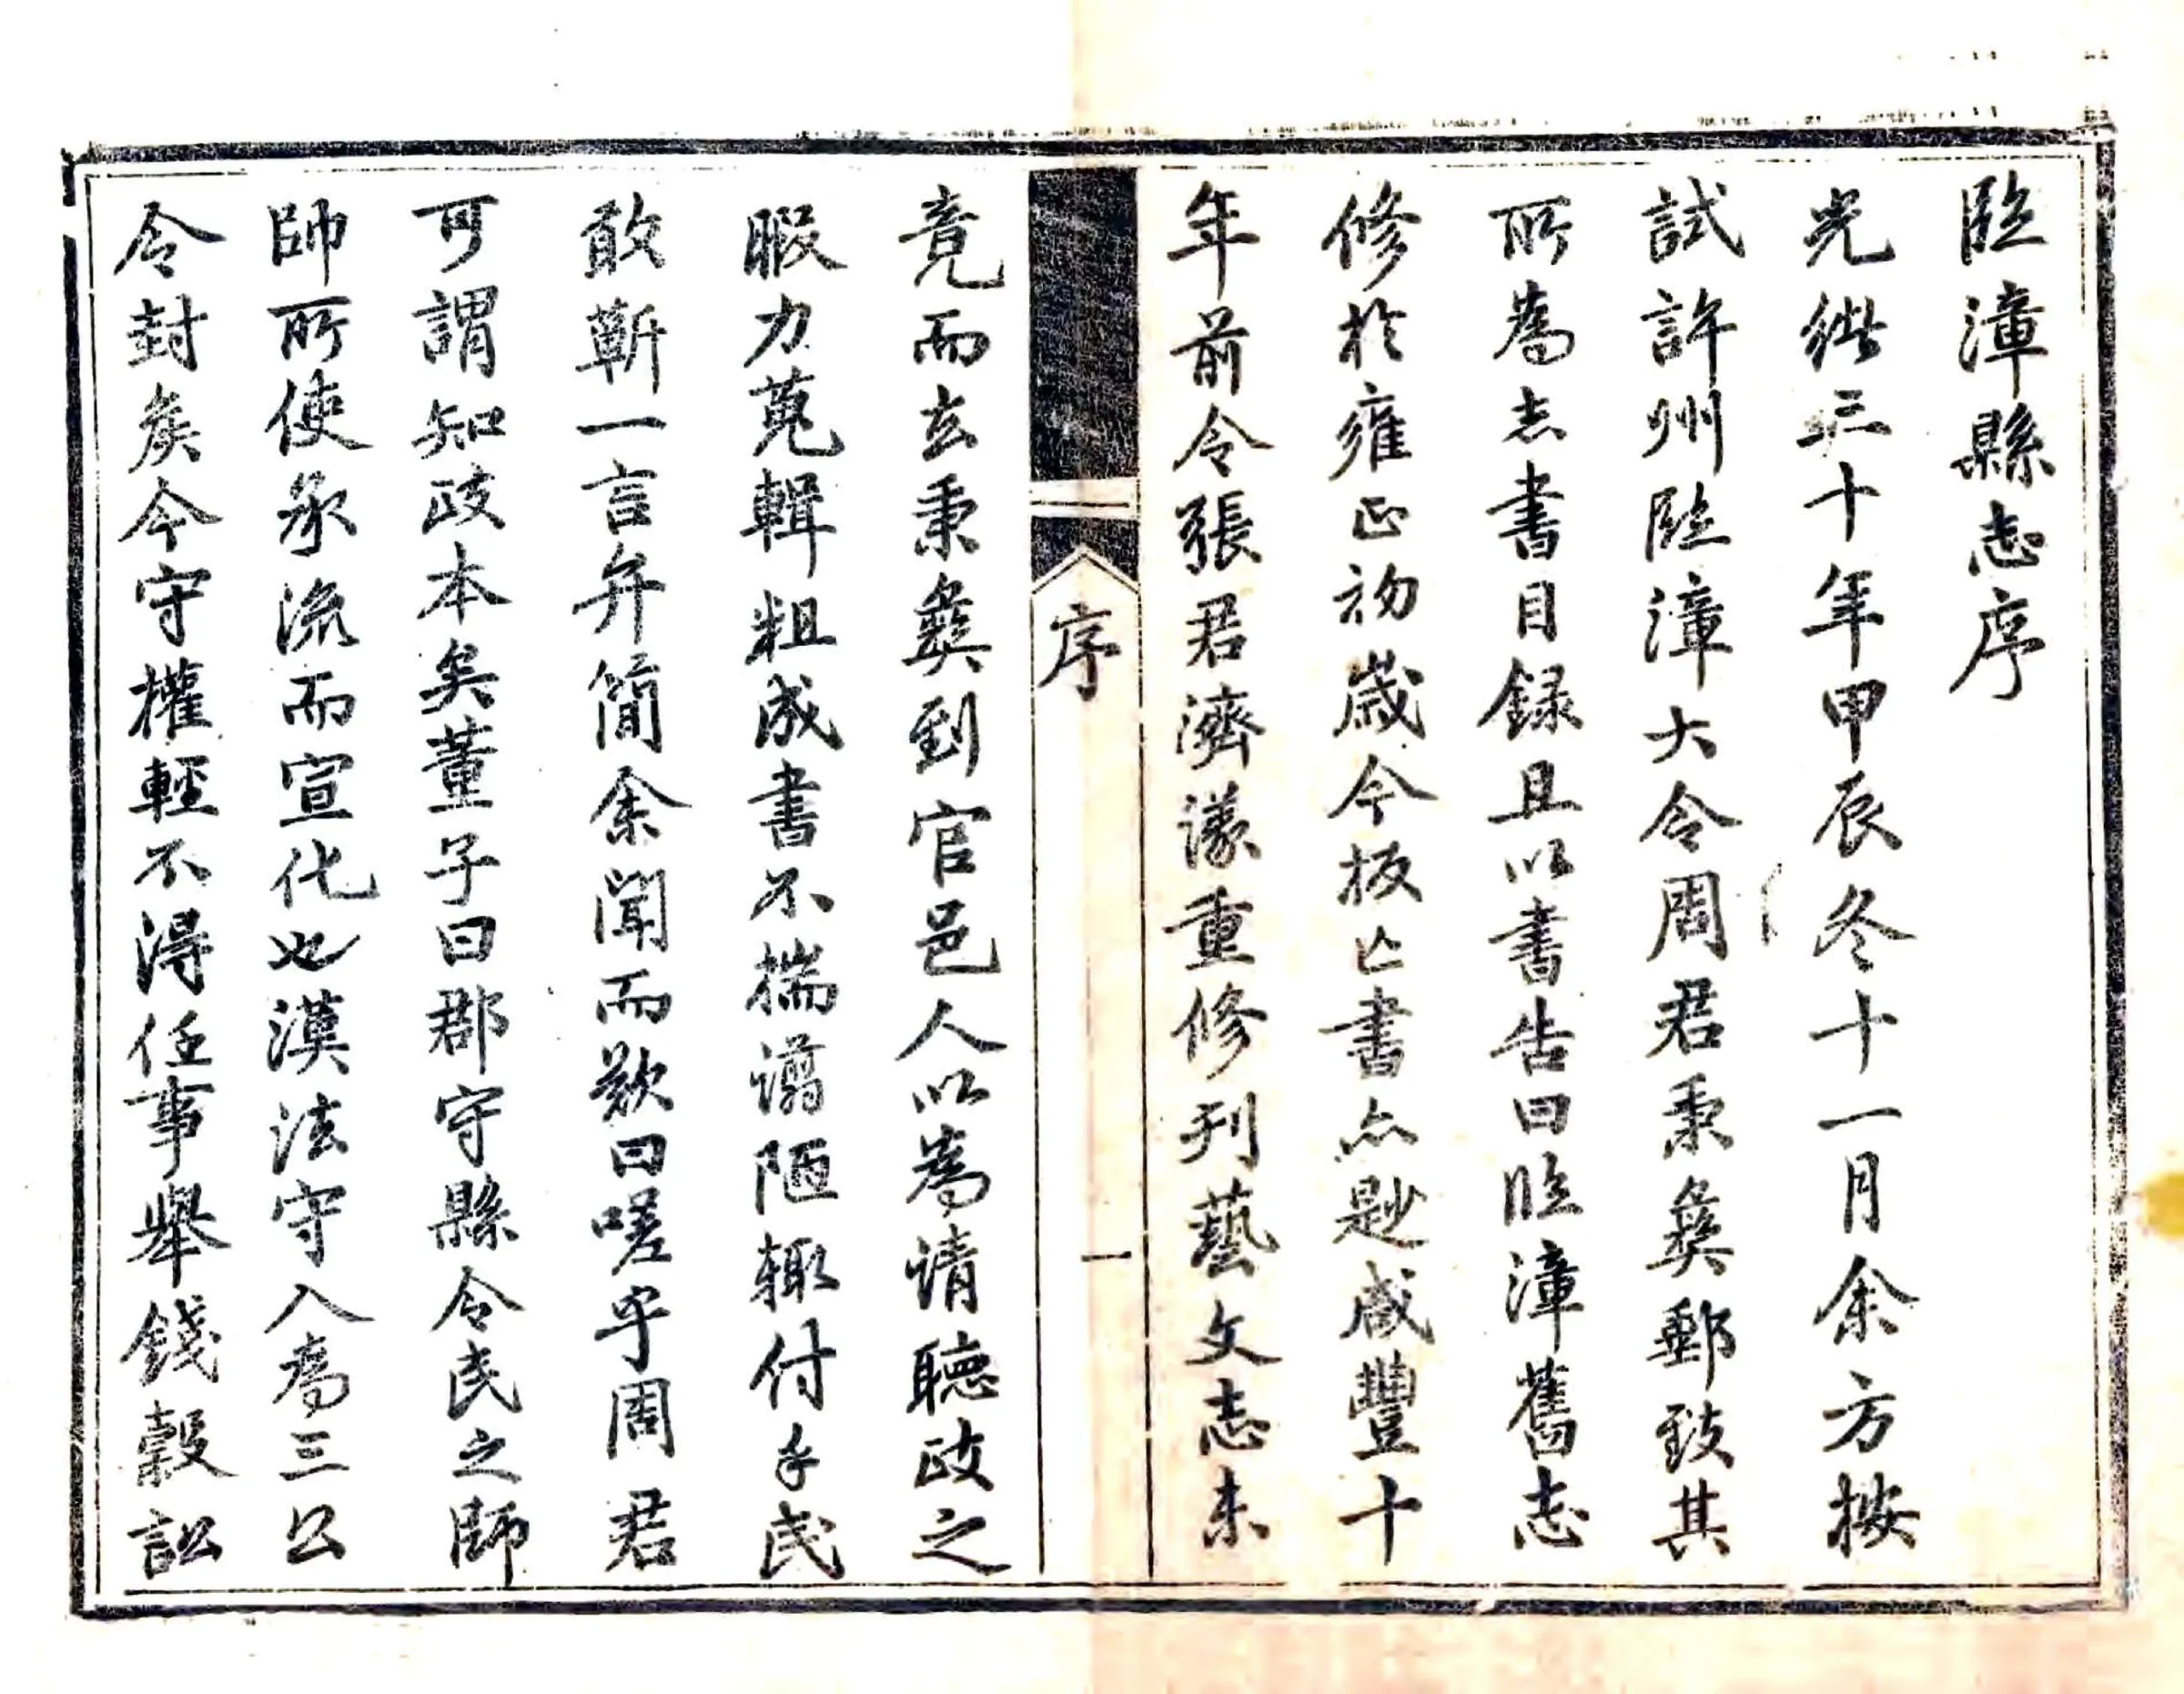 臨漳縣志序
光緒三十年甲辰冬十一月余方按
試許州臨漳大令周君秉彝郵致其
所為志書目録且以書告曰臨漳舊志
修於雍正初歲今板亡書亦尟咸豐十
年前令張君濟漾重修刋藝文志未
序
一
竟而去秉彝到官邑人以為请聽政之
暇力蒐輯粗成書不揣谫陋輙付手民
敢蘄一言弁简余聞而歎曰嗟乎周君
可謂知政本矣董子曰郡守縣令民之師
帥所使承流而宣化也漢法守入為三公
令封矦今守權輕不得任事舉錢穀訟